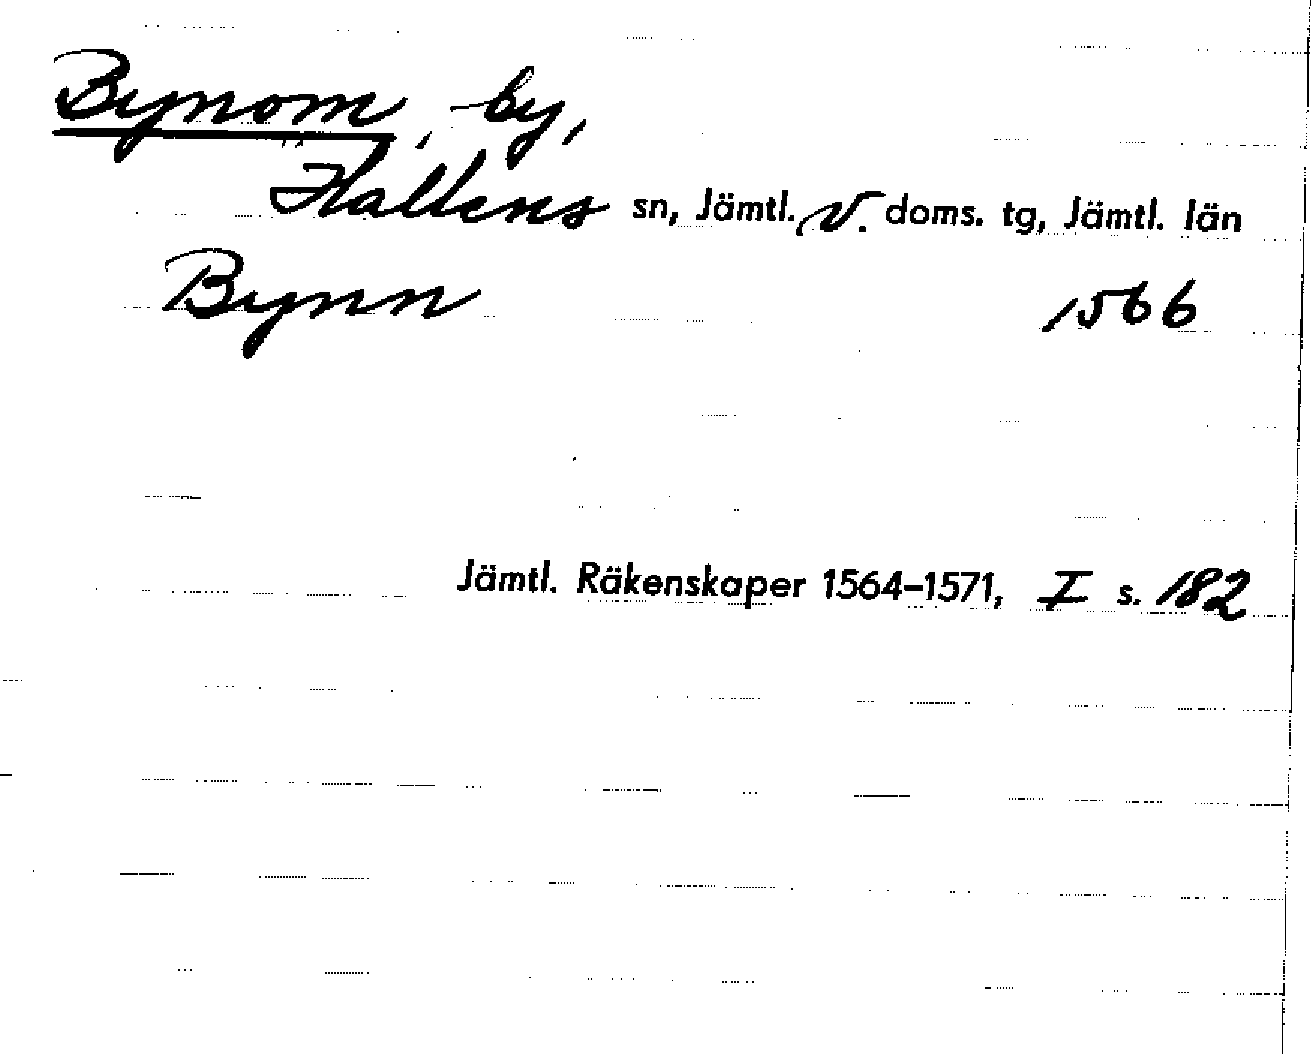 Bynom, by,
Hallens sn, Jämtl. V. doms. tg, Jämtl. län
Bynn 1566
Jämtl. Räkenskaper 1564–1571, I s. 182